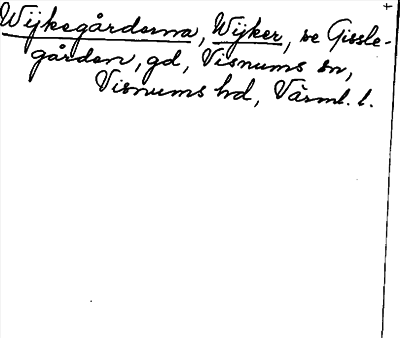 Wijkegårderna, Wijker, se Gissle-
gården, gd, Visnums sn,
Visnums hd, Värml. l.